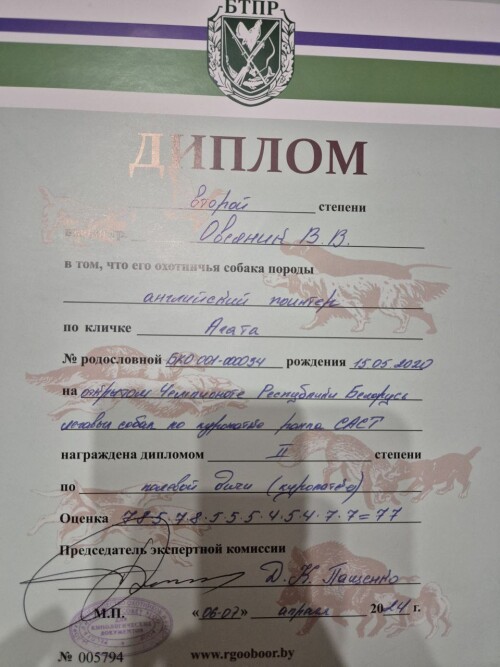 БТПР
ДИПЛОМ
второй степени
Овсяник В. В.
в том, что его охотничья собака породы
английский пойнтер
по кличке Агата
№ родословной БКО 001-000034 рождения 15.05.2020
на открытом Чемпионате Республики Беларусь
легавых собак по куропатке ранга САСТ
награждена дипломом II степени
по полевой дичи (куропатка)
Оценка 7.8.5.7.8.5.5.5.4.5.4.7.7=77
Председатель экспертной комиссии
Д. К. Пащенко
М.П. «06-07» апреля 2024 г.
№ 005794 www.rgooboor.by